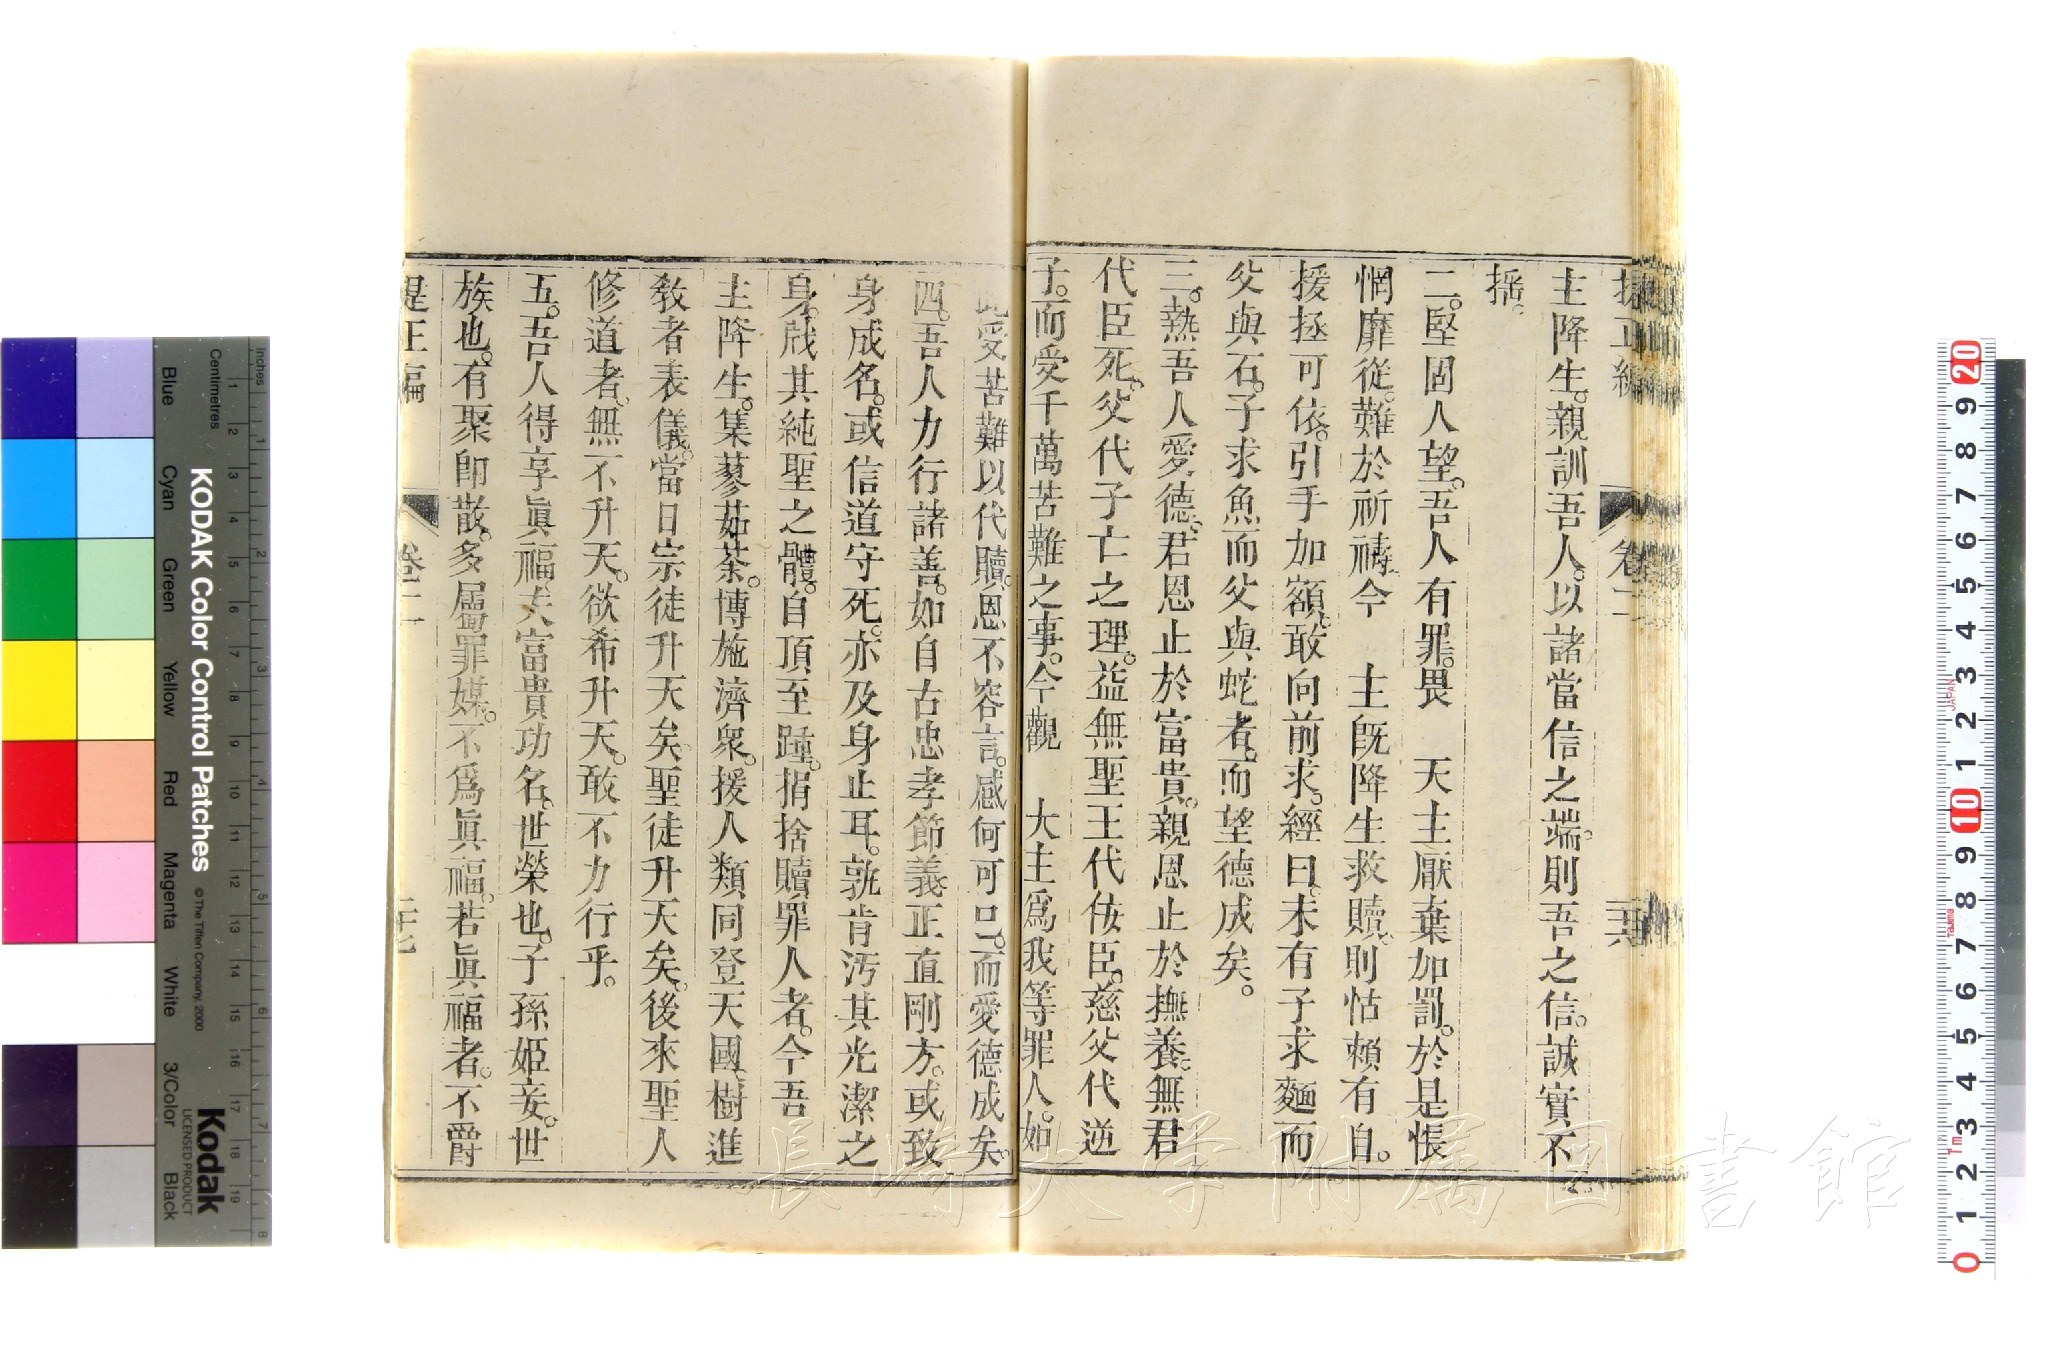 提正編
卷二
二六
主降生。親訓吾人。以諸當信之端。則吾之信。誠實不
搖。
二。堅固人望。吾人有罪。畏　天主厭棄加罰。於是悵
惘靡從。難於祈禱。今　主既降生救贖。則怙賴有自。
援拯可依。引手加額。敢向前求。經曰。未有子求麵而
父與石。子求魚而父與蛇者。而望德成矣。
三。熱吾人愛德。君恩止於富貴。親恩止於撫養。無君
代臣死。父代子亡之理。益無聖王代侫臣。慈父代逆
子。而受千萬苦難之事。今觀　大主爲我等罪人。如
此受苦難以代贖。恩不容言。感何可已。而愛德成矣。
四。吾人力行諸善。如自古忠孝節義。正直剛方。或致
身成名。或信道守死。亦及身止耳。孰肯污其光潔之
身。戕其純聖之體。自頂至踵。捐捨贖罪人者。今吾
主降生。集蓼茹荼。博施濟衆。援人類同登天國。樹進
敎者表儀。當日宗徒升天矣。聖徒升天矣。後來聖人
修道者。無不升天。欲希升天。敢不力行乎。
五。吾人得享眞福。夫富貴功名。世榮也。子孫姬妾。世
族也。有聚卽散。多屬罪媒。不爲眞福。若眞福者。不爵
提正編
卷二
二七
長崎大学附属図書館
KODAK Color Control Patches
© The Tiffen Company, 2000
Kodak
LICENSED PRODUCT
Centimetres
Inches
Blue
Cyan
Green
Yellow
Red
Magenta
White
3/Color
Black
JAPAN
Tajima